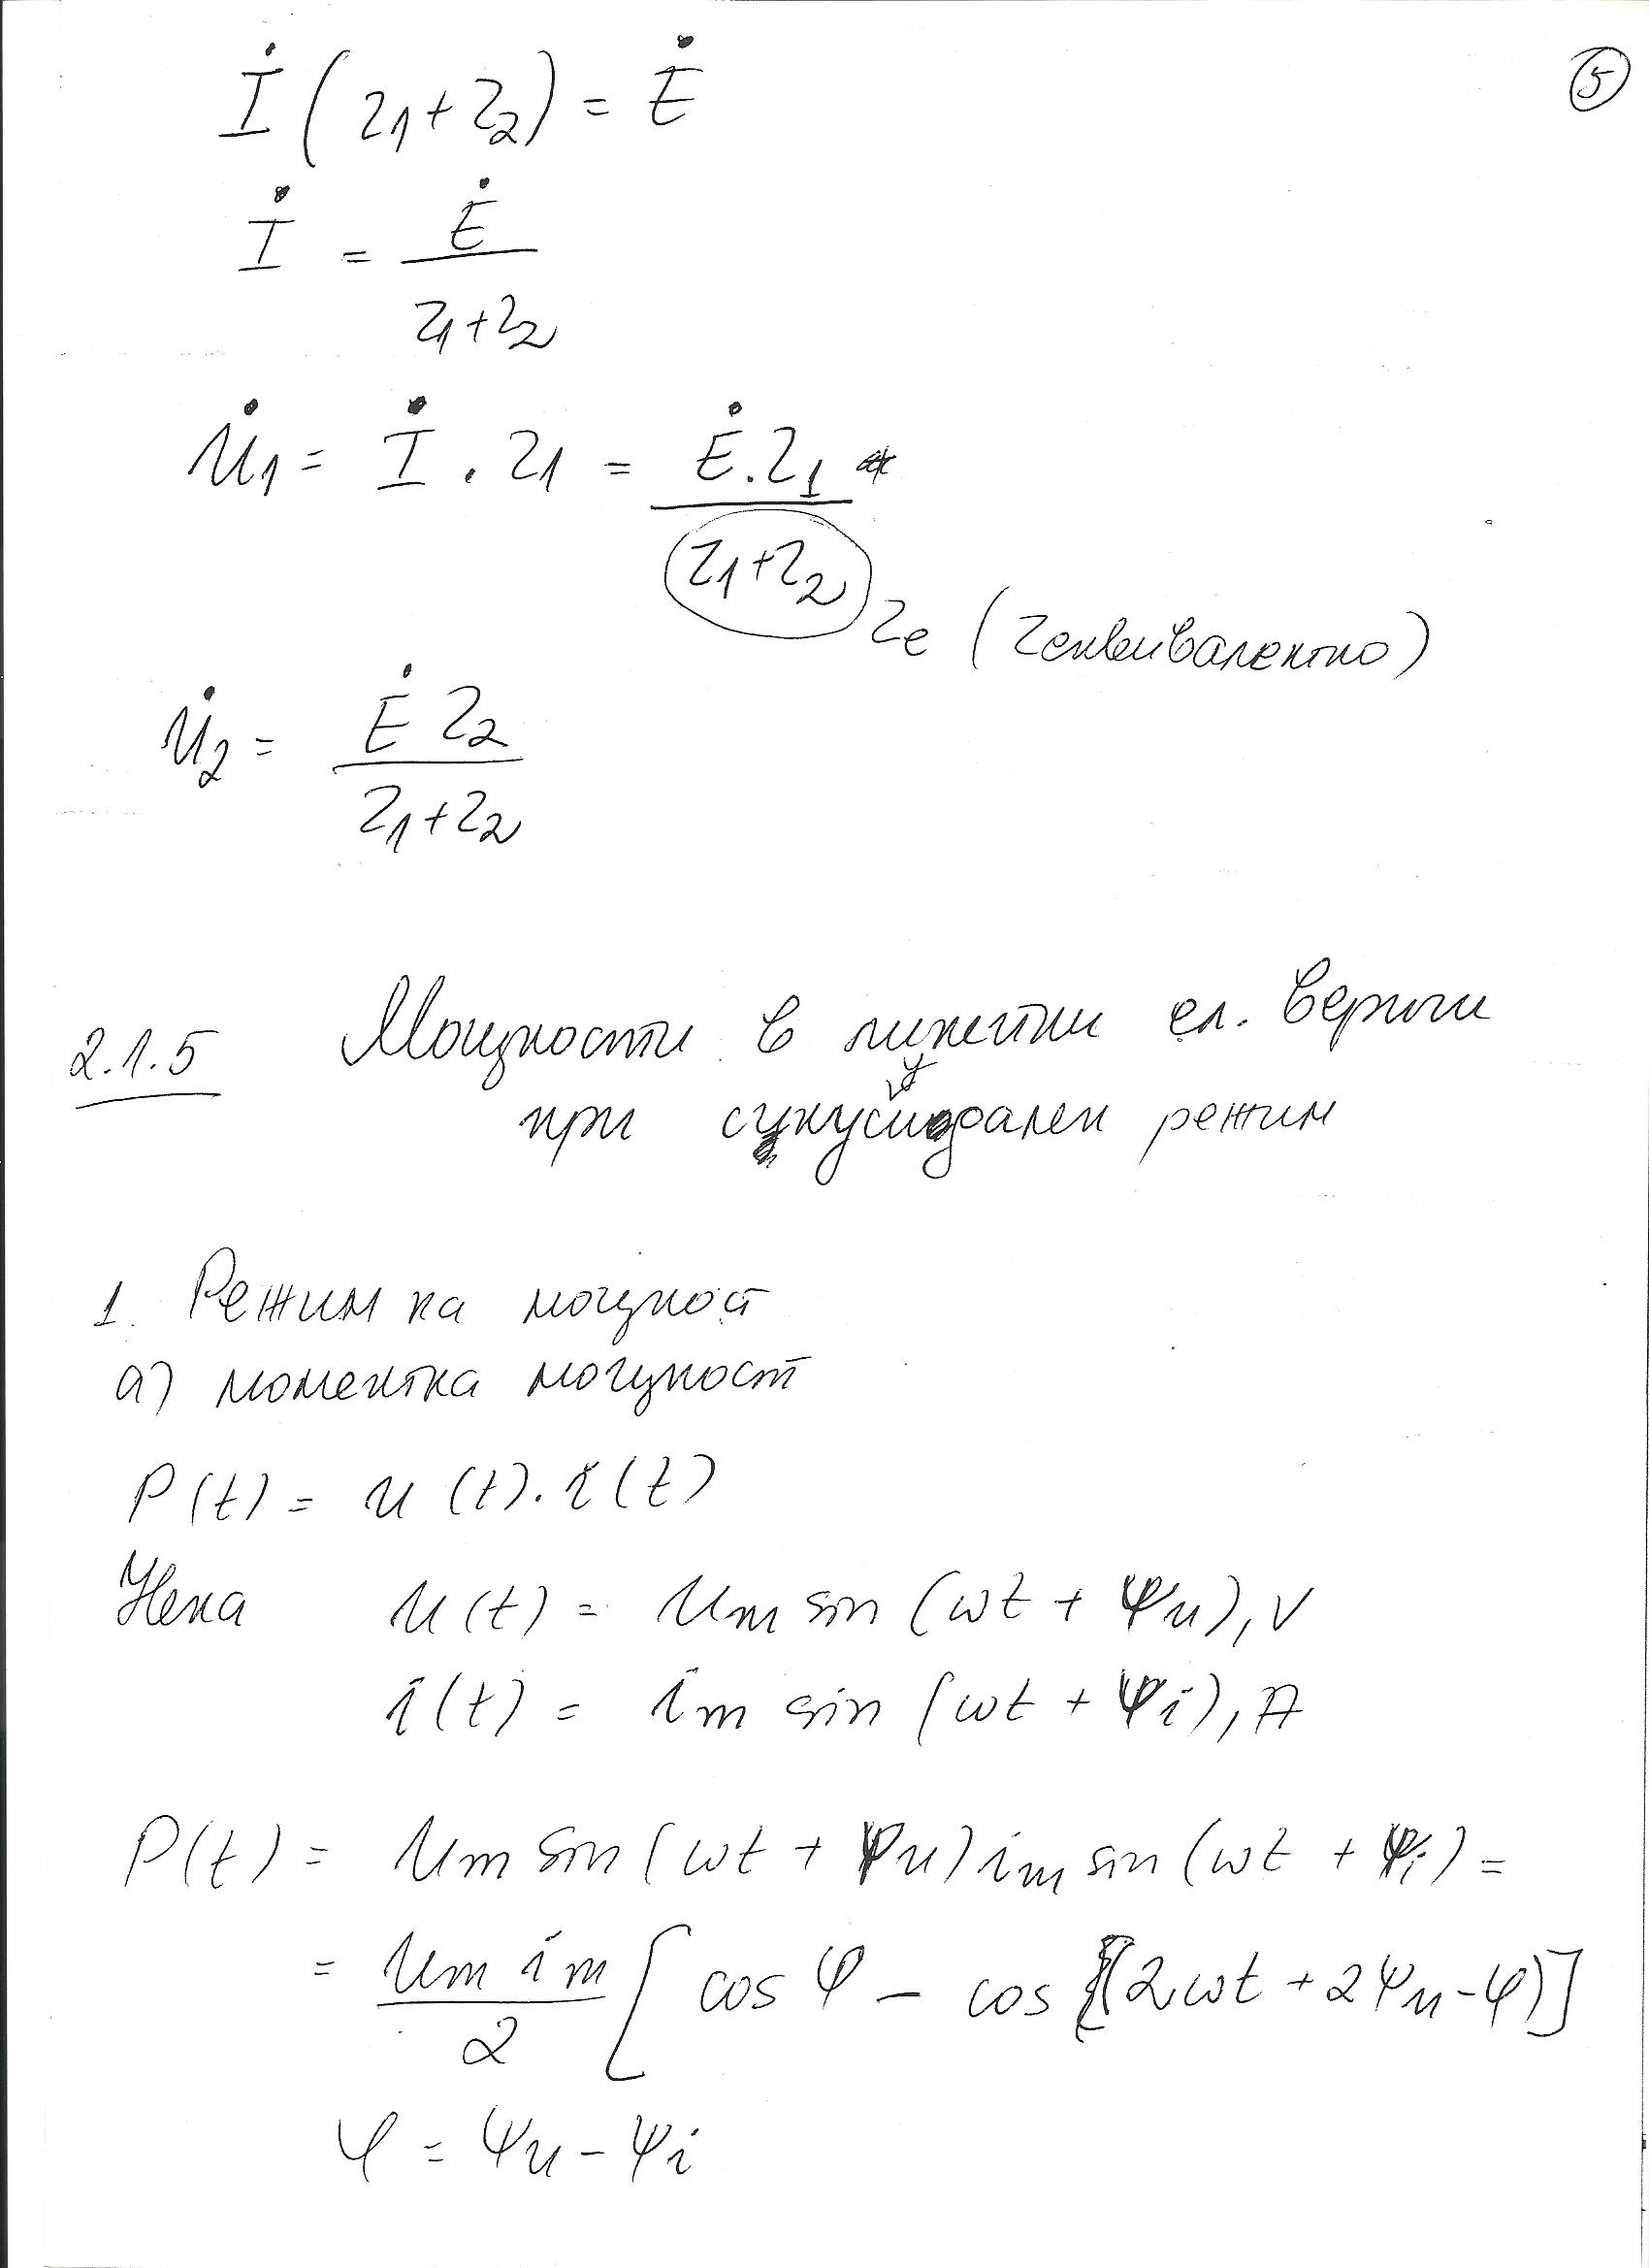 5
İ (Z1+Z2) = Ė
İ = Ė / (Z1+Z2)
U̇1 = İ . Z1 = Ė.Z1 / (Z1+Z2) Ze (Zеквивалентно)
U̇2 = Ė Z2 / (Z1+Z2)
2.1.5 Мощности в линейни ел. вериги
при синусоидален режим
1. Режим на мощност
а) моментна мощност
P(t) = u(t).i(t)
Нека u(t) = Um sin (ωt + Ψu), V
i(t) = im sin (ωt + Ψi), A
P(t) = Um sin (ωt + Ψu) im sin (ωt + Ψi) =
= Um im / 2 [cos φ - cos (2ωt + 2Ψu - φ)]
φ = Ψu - Ψi